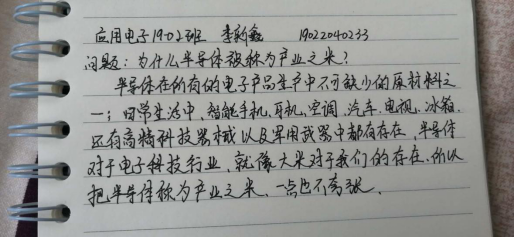 应用电子1902班 李新鑫 19022040233
问题:为什么半导体被称为产业之米?
半导体在所有的电子产品生产中不可缺少的原材料之
一;日常生活中,智能手机、耳机、空调、汽车、电视、冰箱
还有高精科技器械以及军用武器中都有存在,半导体
对于电子科技行业,就像大米对于我们的存在.所以
把半导体称为产业之米,一点也不夸张.